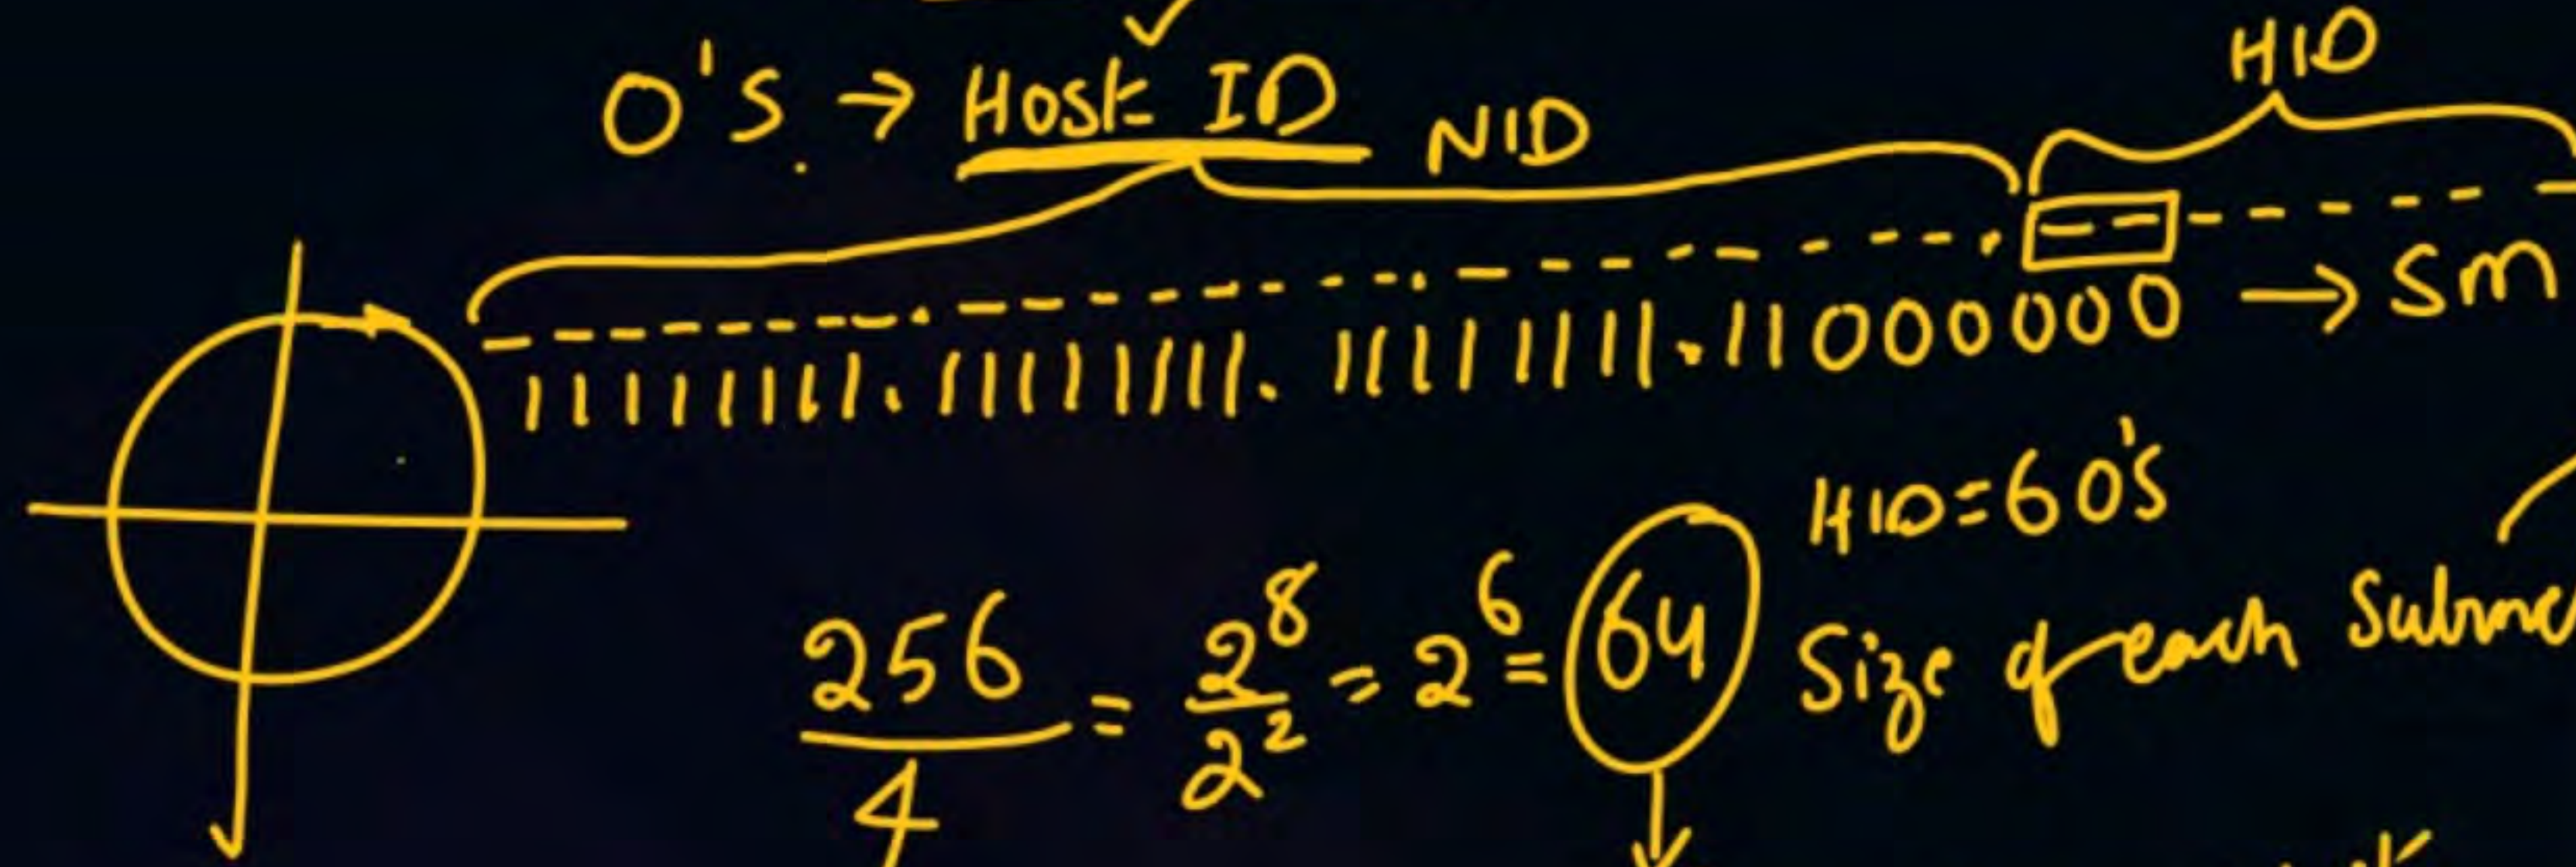 0's → Host ID
NID
HID
11111111.11111111.11111111.11000000 → Sm
HID = 6 0's
256/4 = 2^8/2^2 = 2^6 = 64
Size of each